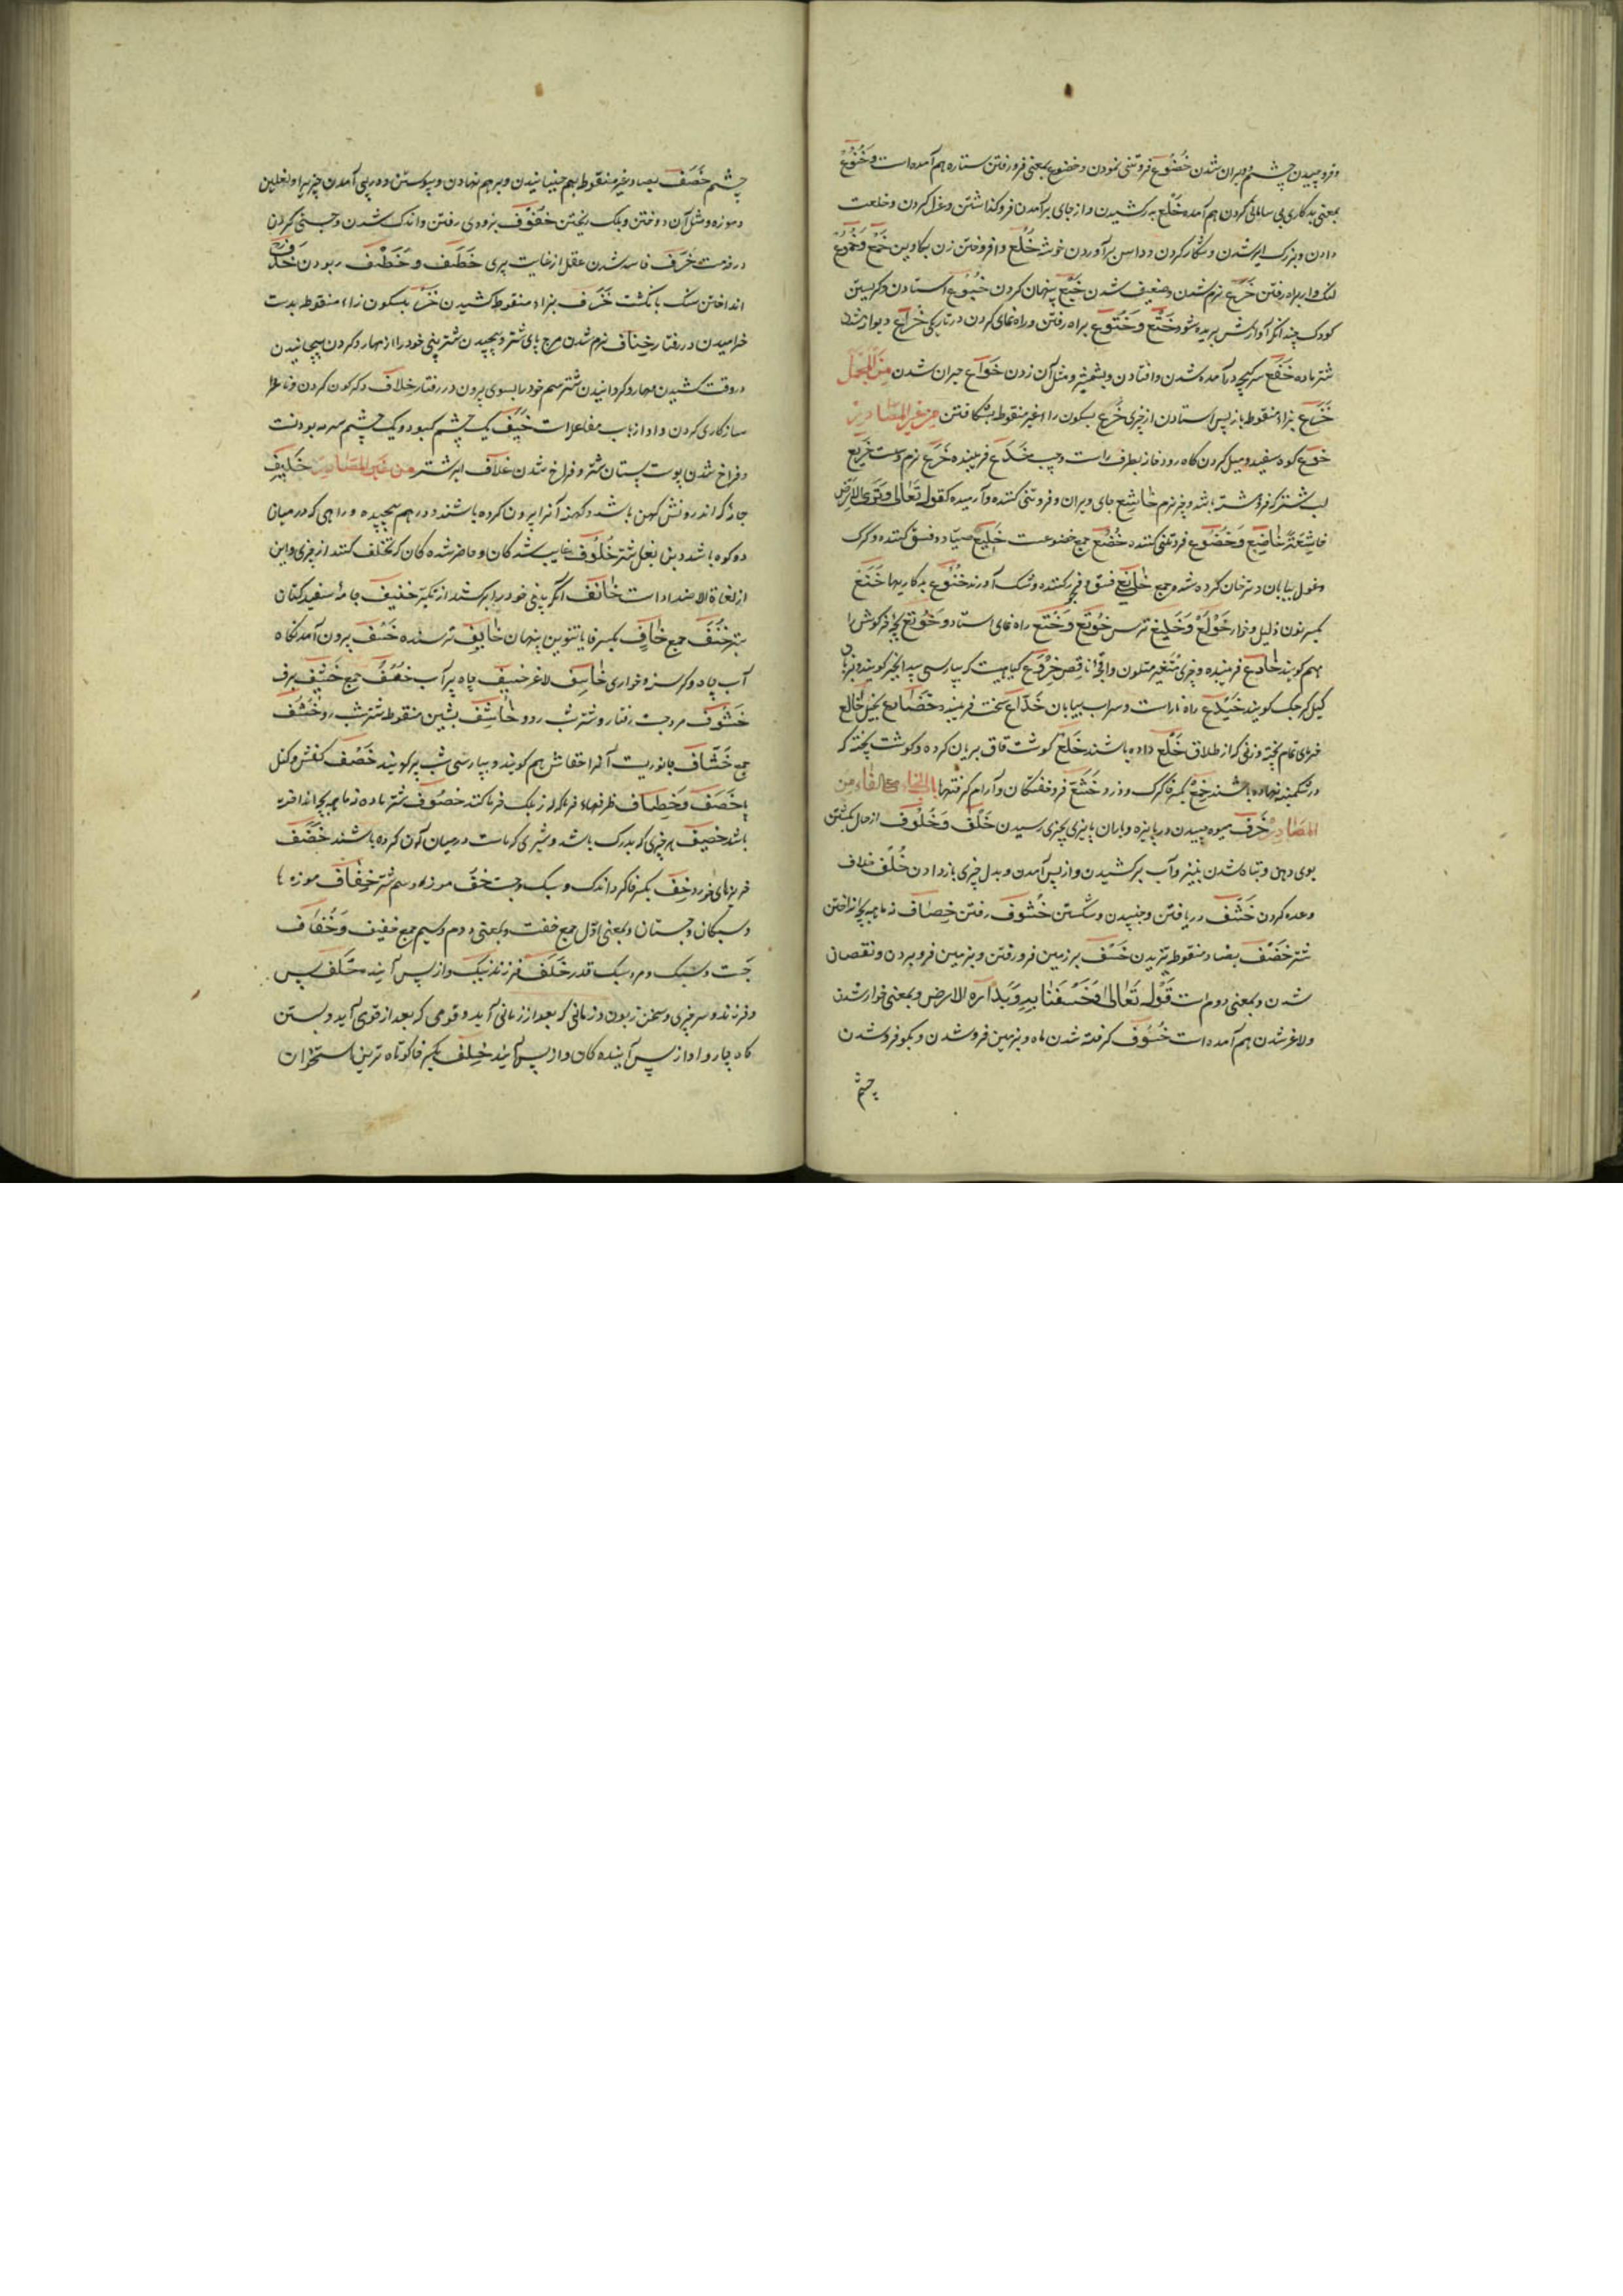 و فروچپیدن چشم و ویران شدن خُضُوع فروتنی نمودن و خضوع بمعنی فرو رفتن ستاره هم آمده است و خُنُوع
بمعنی بدکاری بی سامانی کردن هم آمده خَلْع برکشیدن و از جای برآمدن فرو گذاشتن و عزل کردن و خلعت
دادن و بزرگ ایر شدن و شکار کردن و داس برآوردن خوشه خُلْع وا فروختن زن بکاوین خَمْع وَخُمُوع
لنک وار براه رفتن خَرَع نرم شدن و ضعیف شدن خَبْع پنهان کردن خُبُوع استادن و گریستن
کودک چندانکه آوازش بریده شود خَتْع وَخُتُوع براه رفتن و راه نمای کردن در تاریکی خُرَاع دیوانه شدن
شتر ماده خَفْع سرگیچه درآمده شدن و افتادن و بشمشیر و مثل آن زدن خَوَاع حیران شدن مِنَ المُجْمَل
خَزْع بزاء منقوطه باز پس استادن از چیزی خَرْع بسکون راء غیر منقوطه بشکافتن مِن غیر المصَادِر
خَوْع کوه سفید و میل کردن گاه رودخانه بطرف راست و چپ خَدِع فریبنده خَرِع نرم و سست خَرِیع
لب شتر که فروهشته باشد و چیز نرم خَاشِع جای ویران و فروتنی کننده و آرمیده کقوله تَعَالیٰ وَتَرَی الاَرْضَ
خاشِعَةً خَاضِع وَخَضُوع فروتنی کننده خُضُع جمع خضوعست خَلِیع صیاد و فسق کننده و گرک
و غول بیابان و ترخان کرده شده و جمع خَانِع فسق و فجور کننده و شک آورنده خُنُوع بدکاریها خَنِع
بکسر نون ذلیل و خوار خَوْلَع وَخَیْلَع ترس خَوْتَع وَخُتَع راه نمای استاد و خَوْتَع بچهٔ خرگوش را
هم گویند خَادِع فریبنده و چیزی متغیر متلون و ناقص خِرْوَع گیاهیست که بپارسی بیدانجیر گویند و بزبان
گیل کرچک گویند خَیْدَع راه ناراست و سراب بیابان خَدَّاع سخت فریبنده بخیل خَالِع
خرمای تمام پخته و زنی که از طلاق خُلْع داده باشند خَلْع گوشت قاق بریان کرده و گوشت پخته که
در شکمبه نهاده باشند خِمْع بکسر خا گرک و دزد خُشَّع فروخفتگان و آرام گرفتها باب الخاء مع الفاء من
المصَادِر خَرْف میوه چیدن در پائیزه و باران پائیزی بچیزی رسیدن خَلْف وَخُلُوف از حال بکشتن
بوی دهن و تباه شدن بنیز و آب برکشیدن و از پس آمدن و بدل چیزی باز دادن خُلْف خلاف
وعده کردن خَشْف دریافتن و جنبیدن و شکستن خُشُوف رفتن خِصَاف نه ماهه بچه انداختن
شتر خَضْف بضاد منقوطه تیزیدن خَسْف بر زمین فرو رفتن و بزمین فرو بردن و نقصان
شدن و بمعنی دوم است قَوْلُه تَعَالیٰ فَخَسَفْنَا بِهِ وَبِدَارِهِ الارض و بمعنی خوار شدن
و لاغر شدن هم آمده است خُسُوف گرفته شدن ماه و بزمین فرو شدن و بکو فرو شدن
چشم
چشم خَصْف بصاد غیر منقوطه بهم جنبانیدن و بر هم نهادن و پیوستن و در پی آمدن چیزی را و نعلین
و موزه و مثل آن دوختن و بلک ریختن خُفُوف بزودی رفتن و اندک شدن و چستی کردن
در خدمت خَرَف فاسد شدن عقل از غایت پیری خَطْف و خَطَف ربودن خَذْف
انداختن سنک بانگشت خَزْف بزاء منقوطه کشیدن خَزْف بسکون زاء منقوطه بدست
خرامیدن در رفتار خِنَاف نرم شدن مرچ پای شتر و پیچیدن شتر بینی خود را از مهار و گردن پیچانیدن
در وقت کشیدن مهار و گردانیدن شتر سم خود را بسوی بیرون در رفتار خلاف دگرگون کردن و نا
سازگاری کردن و او از باب مفاعل است خَیَف یک چشم کبود و یک چشم سرمه بودنست
و فراخ شدن پوست پستان شتر و فراخ شدن غلاف ایر شتر من غیر المصَادِر خَلِیف
جامهٔ که اندرونش کهن باشد و کهنهٔ آنرا بیرون کرده باشند و در هم پیچیده و راهی که در میان
دو کوه باشد و بن بغل شتر خُلُوف غایب شدگان و حاضر شدگان که تخلف کنند از چیزی و این
از لغاة الاضداد است خَانِف آنکه بینی خود را برکشد از تکبر خَنِیف جامهٔ سفید کتان
بتر خُنُف جمع خَافٍ بکسر فا با تنوین پنهان خَایِف ترسنده خَسْف بیرون آمدنگاه
آب چاه و گرسنه و خواری خَاسِف لاغر خَسِیف چاه پر آب خُسُف جمع خَشِیف برف
خَشُوف مرد چست رفتار و شتر شب رو خَاشِف بشین منقوطه شتر شب رو خُشَّف
جمع خُشَّاف جانوریست آنرا خفاش هم گویند و بپارسی شب پر گویند خَصْف کفش و کنل
با خَصَف وَخِصَاف ظرفهاء خرما که از بلک خرما کنند خَصُوف شتر ماده نه ماهه بچه انداخته
باشد خَصِیف هر چیزی که بدرنک باشد و شیری که ماست در میان آن کرده باشند خَضَف
خربزهای خورد خِف بکسر خا گروه اندک و سبک و چست خُف موزه و سم شتر خِفَاف موزه ها
و سبکان و چستان و بمعنی اول جمع خفست و بمعنی دوم و سیم جمع خفیف وَخُفَاف
چست و سبک و مرد سبک قدر خَلَف فرزند نیک و از پس آینده خَلْف پس
و فرزند و سر چیزی و سخن زبون و زمانی که بعد از زمانی آید و قومی که بعد از قومی آید و بستن
گاه چاروا و از پس آینده گان و از پس آیند خِلْف بکسر خا کوتاه ترین استخوان